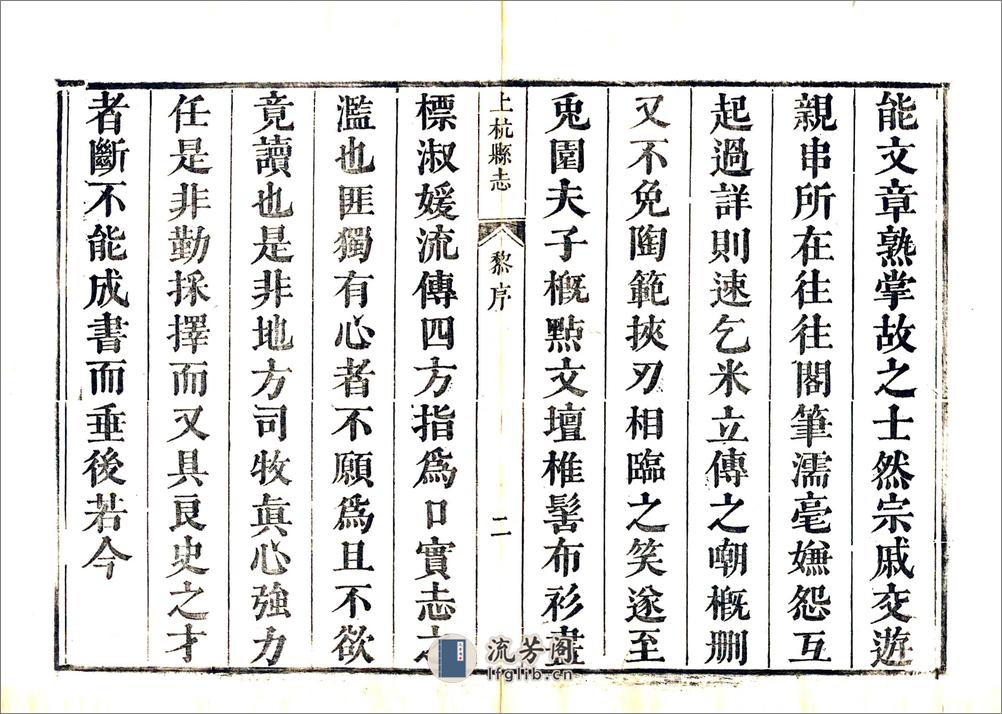 能文章熟掌故之士然宗戚交遊
親串所在往往閣筆濡毫嫌怨互
起過詳則速乞米立傳之嘲概刪
又不免陶範挾刃相臨之笑遂至
兎園夫子概點文壇椎髻布衫盡
上杭縣志
黎序
二
標淑媛流傳四方指爲口實志之
濫也匪獨有心者不願爲且不欲
竟讀也是非地方司牧眞心強力
任是非勤採擇而又具良史之才
者斷不能成書而垂後若今
流芳阁
lfglib.cn